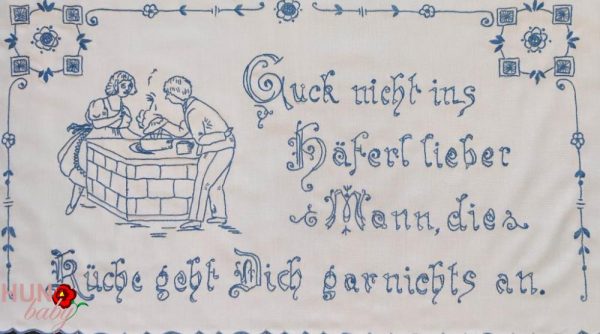 Guck nicht ins
Häferl lieber
Mann, die
Küche geht Dich garnichts an.
HUN
baby